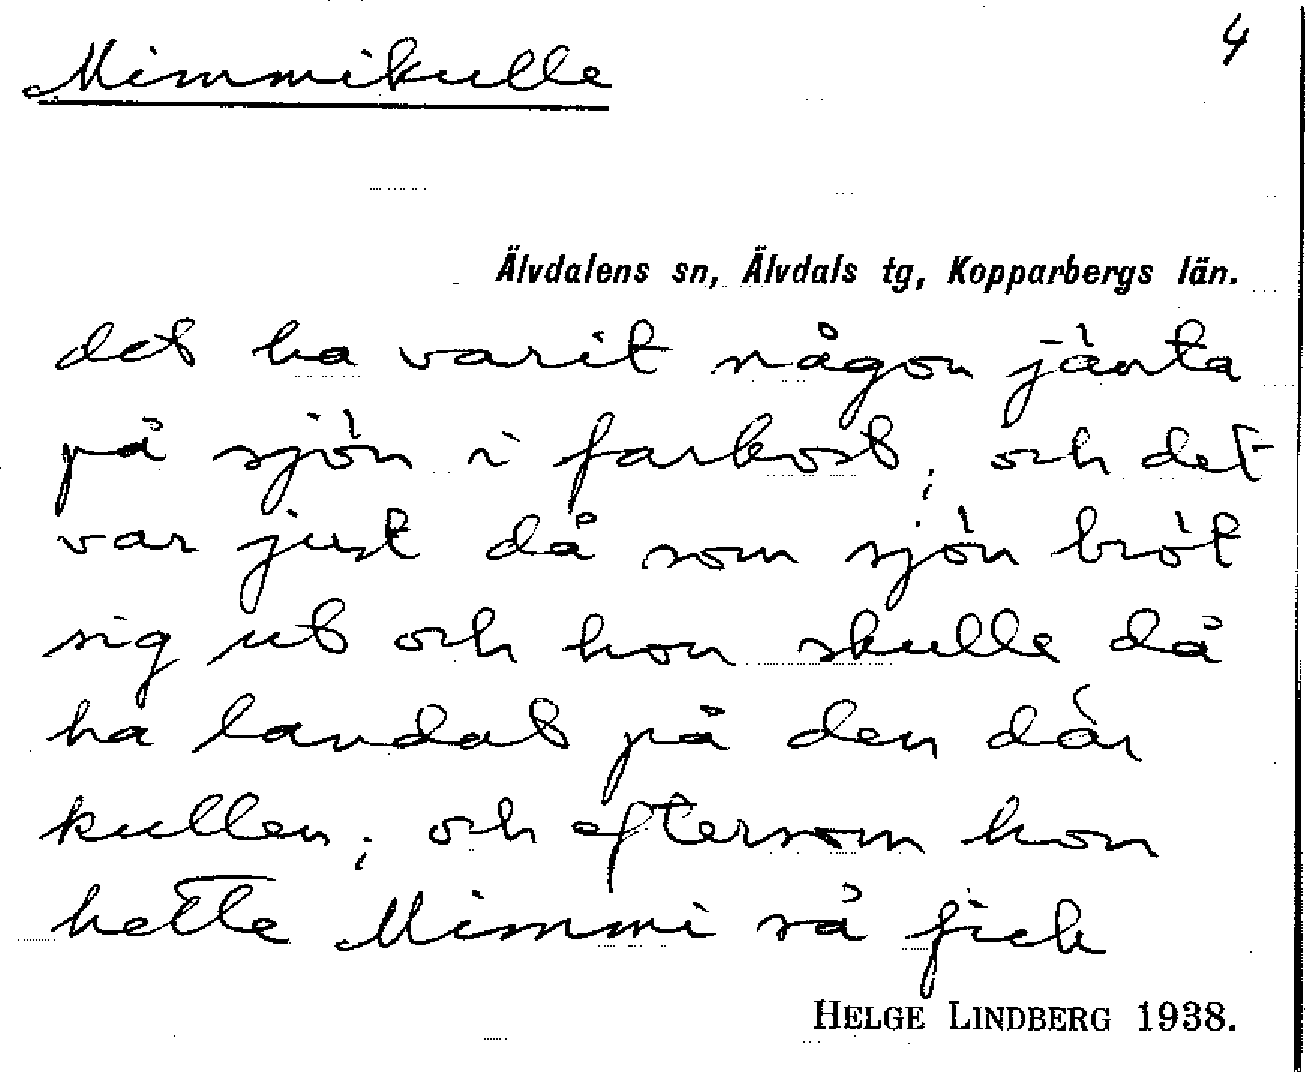 Mimmikulle
4
Älvdalens sn, Älvdals tg, Kopparbergs län.
det ha varit någon jänta
på sjön i farkost; och det
var just då som sjön bröt
sig ut och hon skulle då
ha landat på den där
kullen; och eftersom hon
hette Mimmi så fick
HELGE LINDBERG 1938.